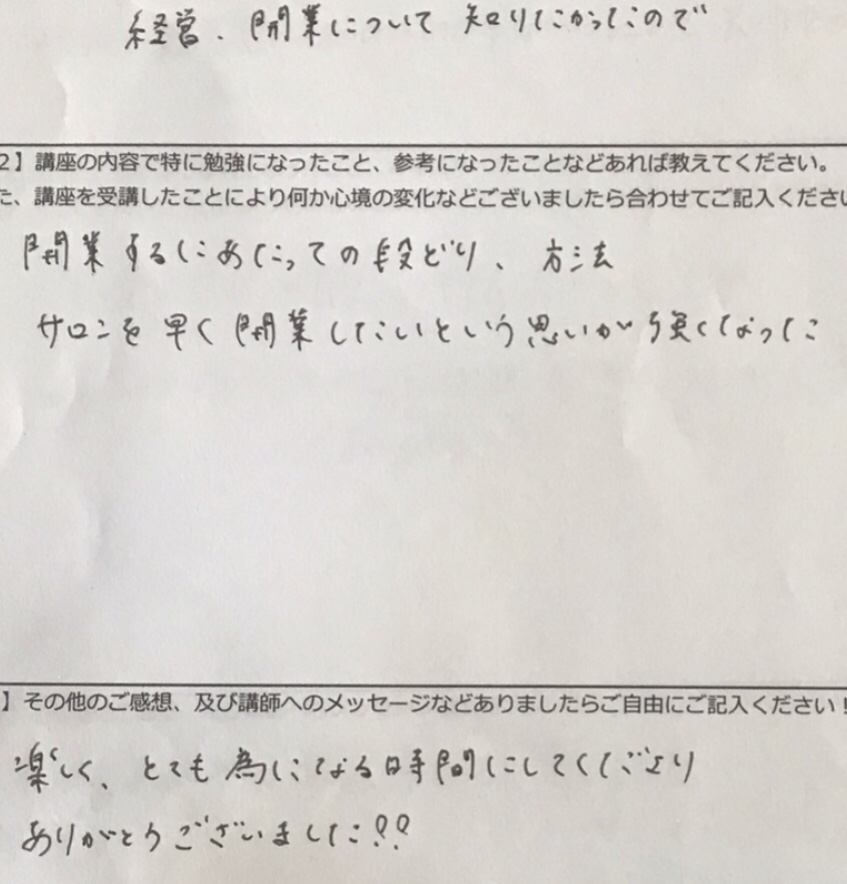 経営、開業について知りたかったので
2】講座の内容で特に勉強になったこと、参考になったことなどあれば教えてください。
た、講座を受講したことにより何か心境の変化などございましたら合わせてご記入ください
開業するにあたっての段どり、方法
サロンを早く開業したいという思いが強くなった
】その他のご感想、及び講師へのメッセージなどありましたらご自由にご記入ください!
楽しく、とても為になる時間にしてくださり
ありがとうございました!?